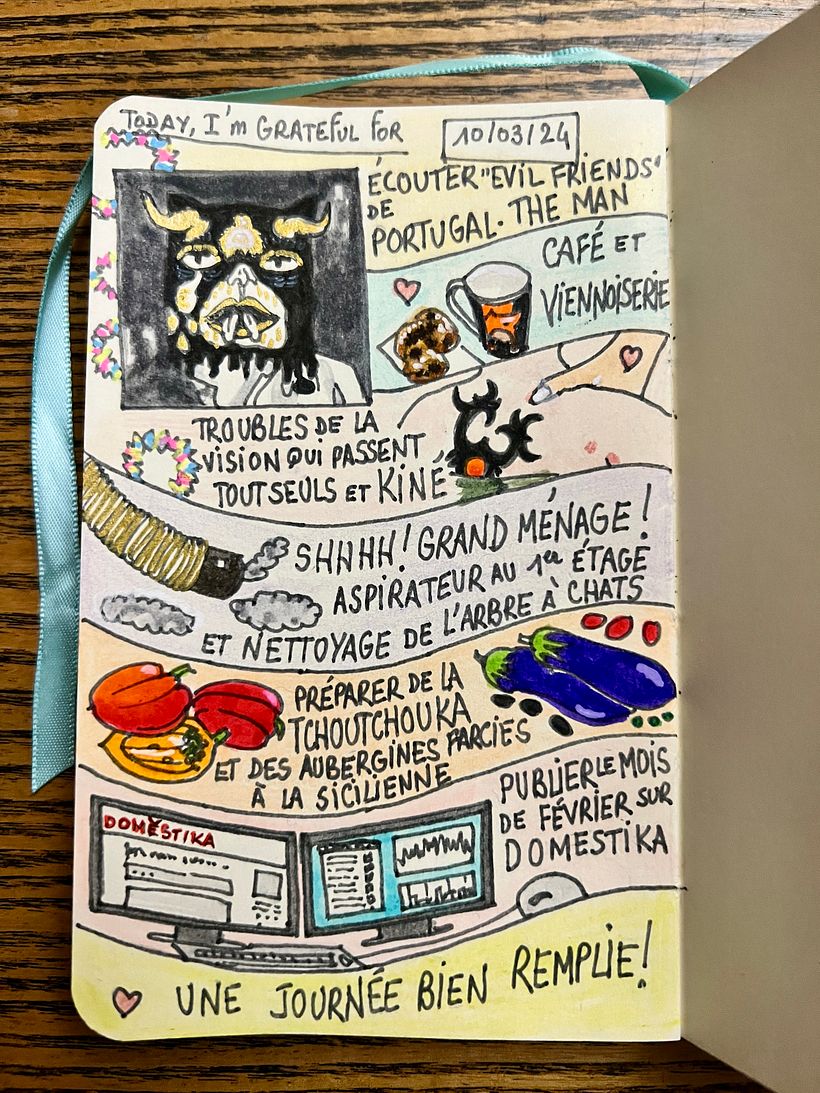 TODAY, I'm GRATEFUL FOR
10/03/24
ÉCOUTER "EVIL FRIENDS"
DE
PORTUGAL. THE MAN
CAFÉ ET
VIENNOISERIE
TROUBLES DE LA
VISION QUI PASSENT
TOUT SEULS ET KINÉ
SHHHH! GRAND MÉNAGE!
ASPIRATEUR AU 1er ÉTAGE
ET NETTOYAGE DE L'ARBRE À CHATS
PRÉPARER DE LA
TCHOUTCHOUKA
ET DES AUBERGINES FARCIES
À LA SICILIENNE
PUBLIER LE MOIS
DE FÉVRIER SUR
DOMESTIKA
DOMESTIKA
UNE JOURNÉE BIEN REMPLIE!